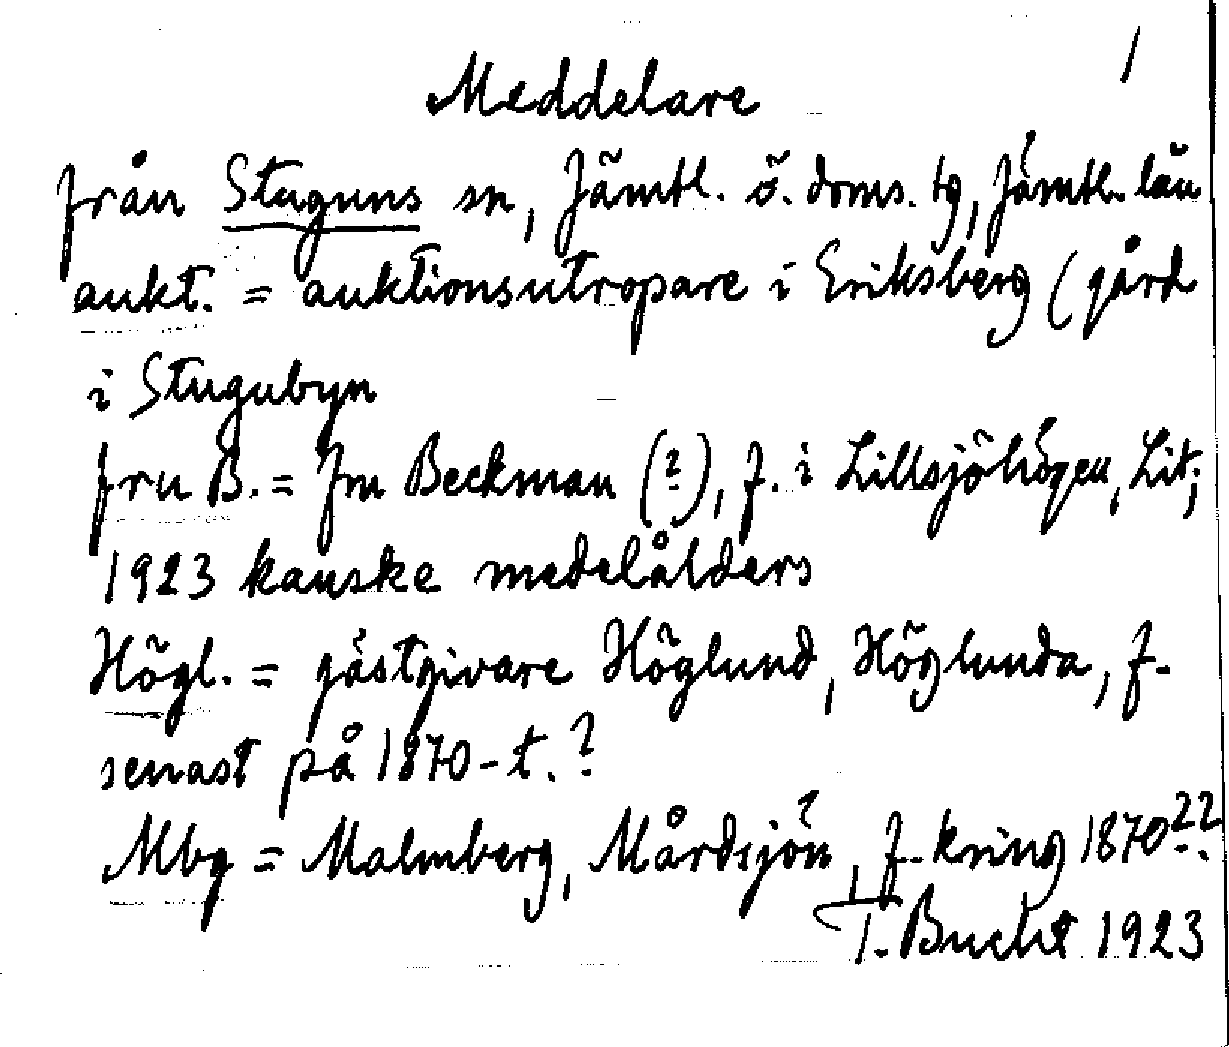 1
Meddelare
från Stuguns sn, Jämtl. ö. doms. tg, Jämtl. län
aukt. = auktionsutropare i Eriksberg (gård
i Stugubyn
fru B. = fru Beckman (?), f. i Lillsjöhögen, Lit;
1923 kanske medelålders
Högl. = gästgivare Höglund, Höglunda, f.
senast på 1870-t.?
Mbg = Malmberg, Mårdsjön, f. kring 1870??
T. Bucht 1923